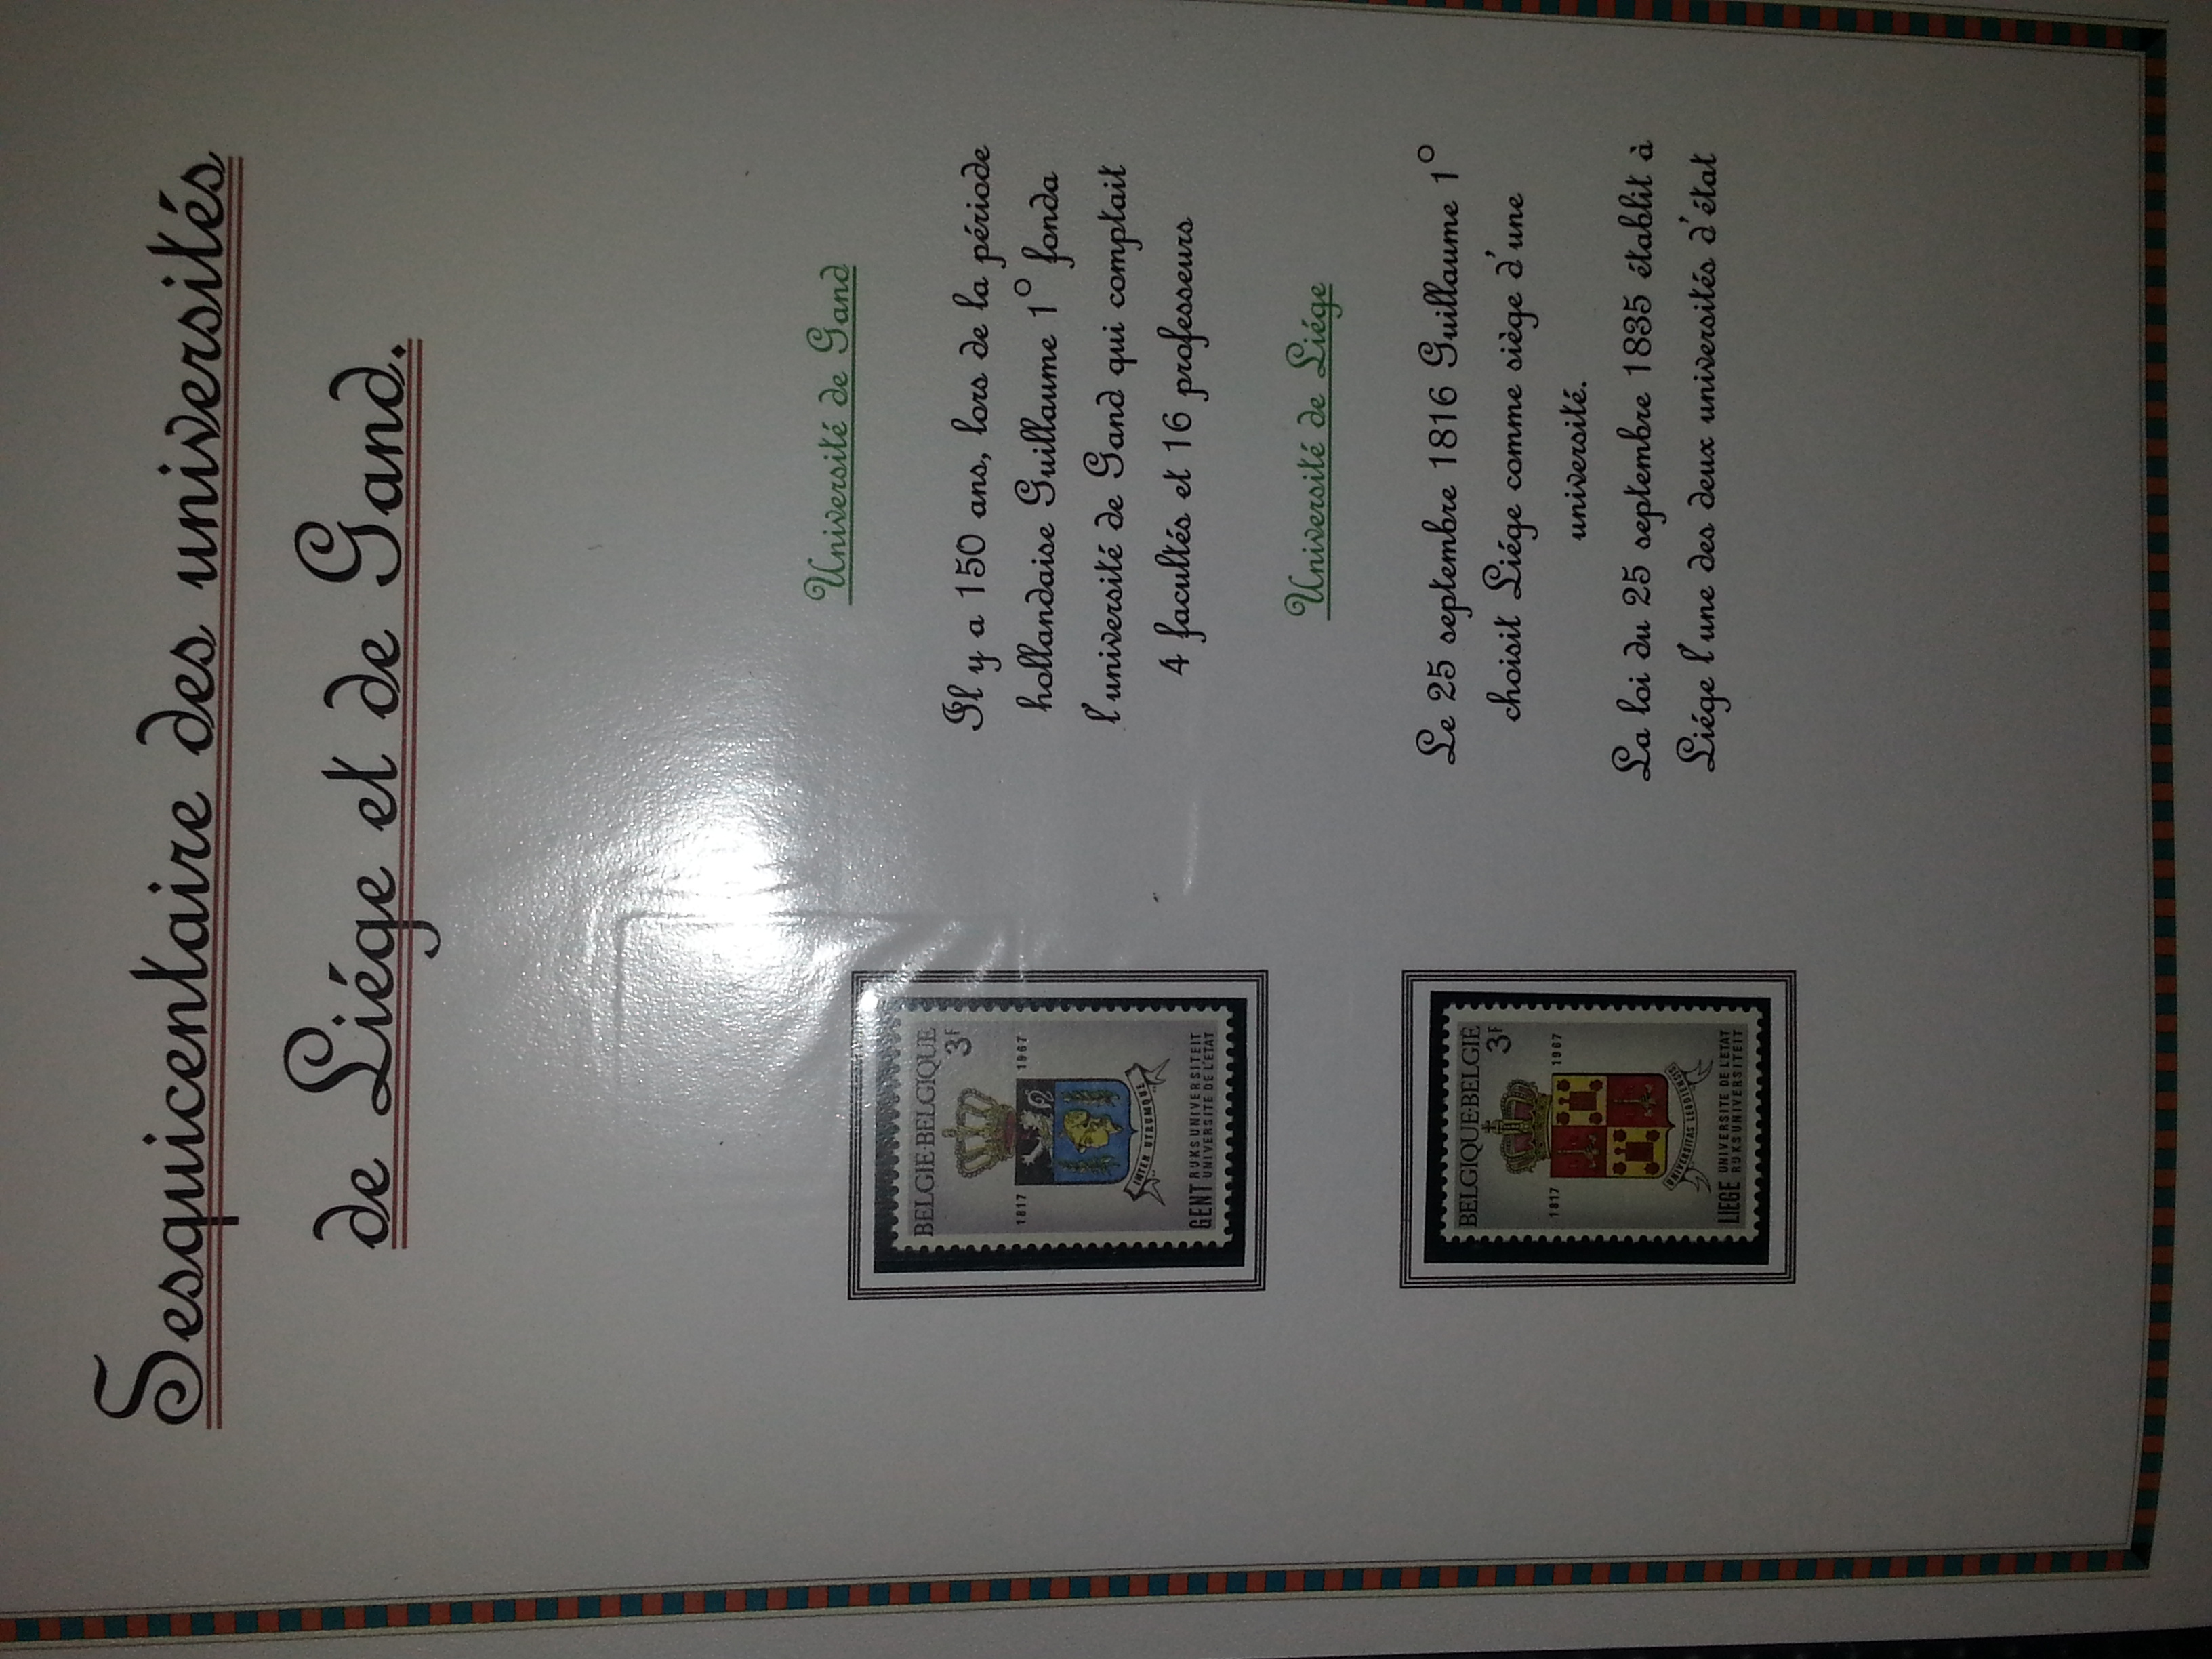 Sesquicentaire des universités
de Liége et de Gand.
Université de Gand
Il y a 150 ans, lors de la période
hollandaise Guillaume 1° fonda
l'université de Gand qui comptait
4 facultés et 16 professeurs
BELGIE-BELGIQUE
3F
1817 1967
INTER UTRUMQUE
GENT RIJKSUNIVERSITEIT
UNIVERSITE DE L'ETAT
Université de Liége
Le 25 septembre 1816 Guillaume 1°
choisit Liége comme siège d'une
université.
La loi du 25 septembre 1835 établit à
Liége l'une des deux universités d'état
BELGIQUE-BELGIE
3F
1817 1967
UNIVERSITAS LEODIENSIS
LIEGE UNIVERSITE DE L'ETAT
RIJKSUNIVERSITEIT